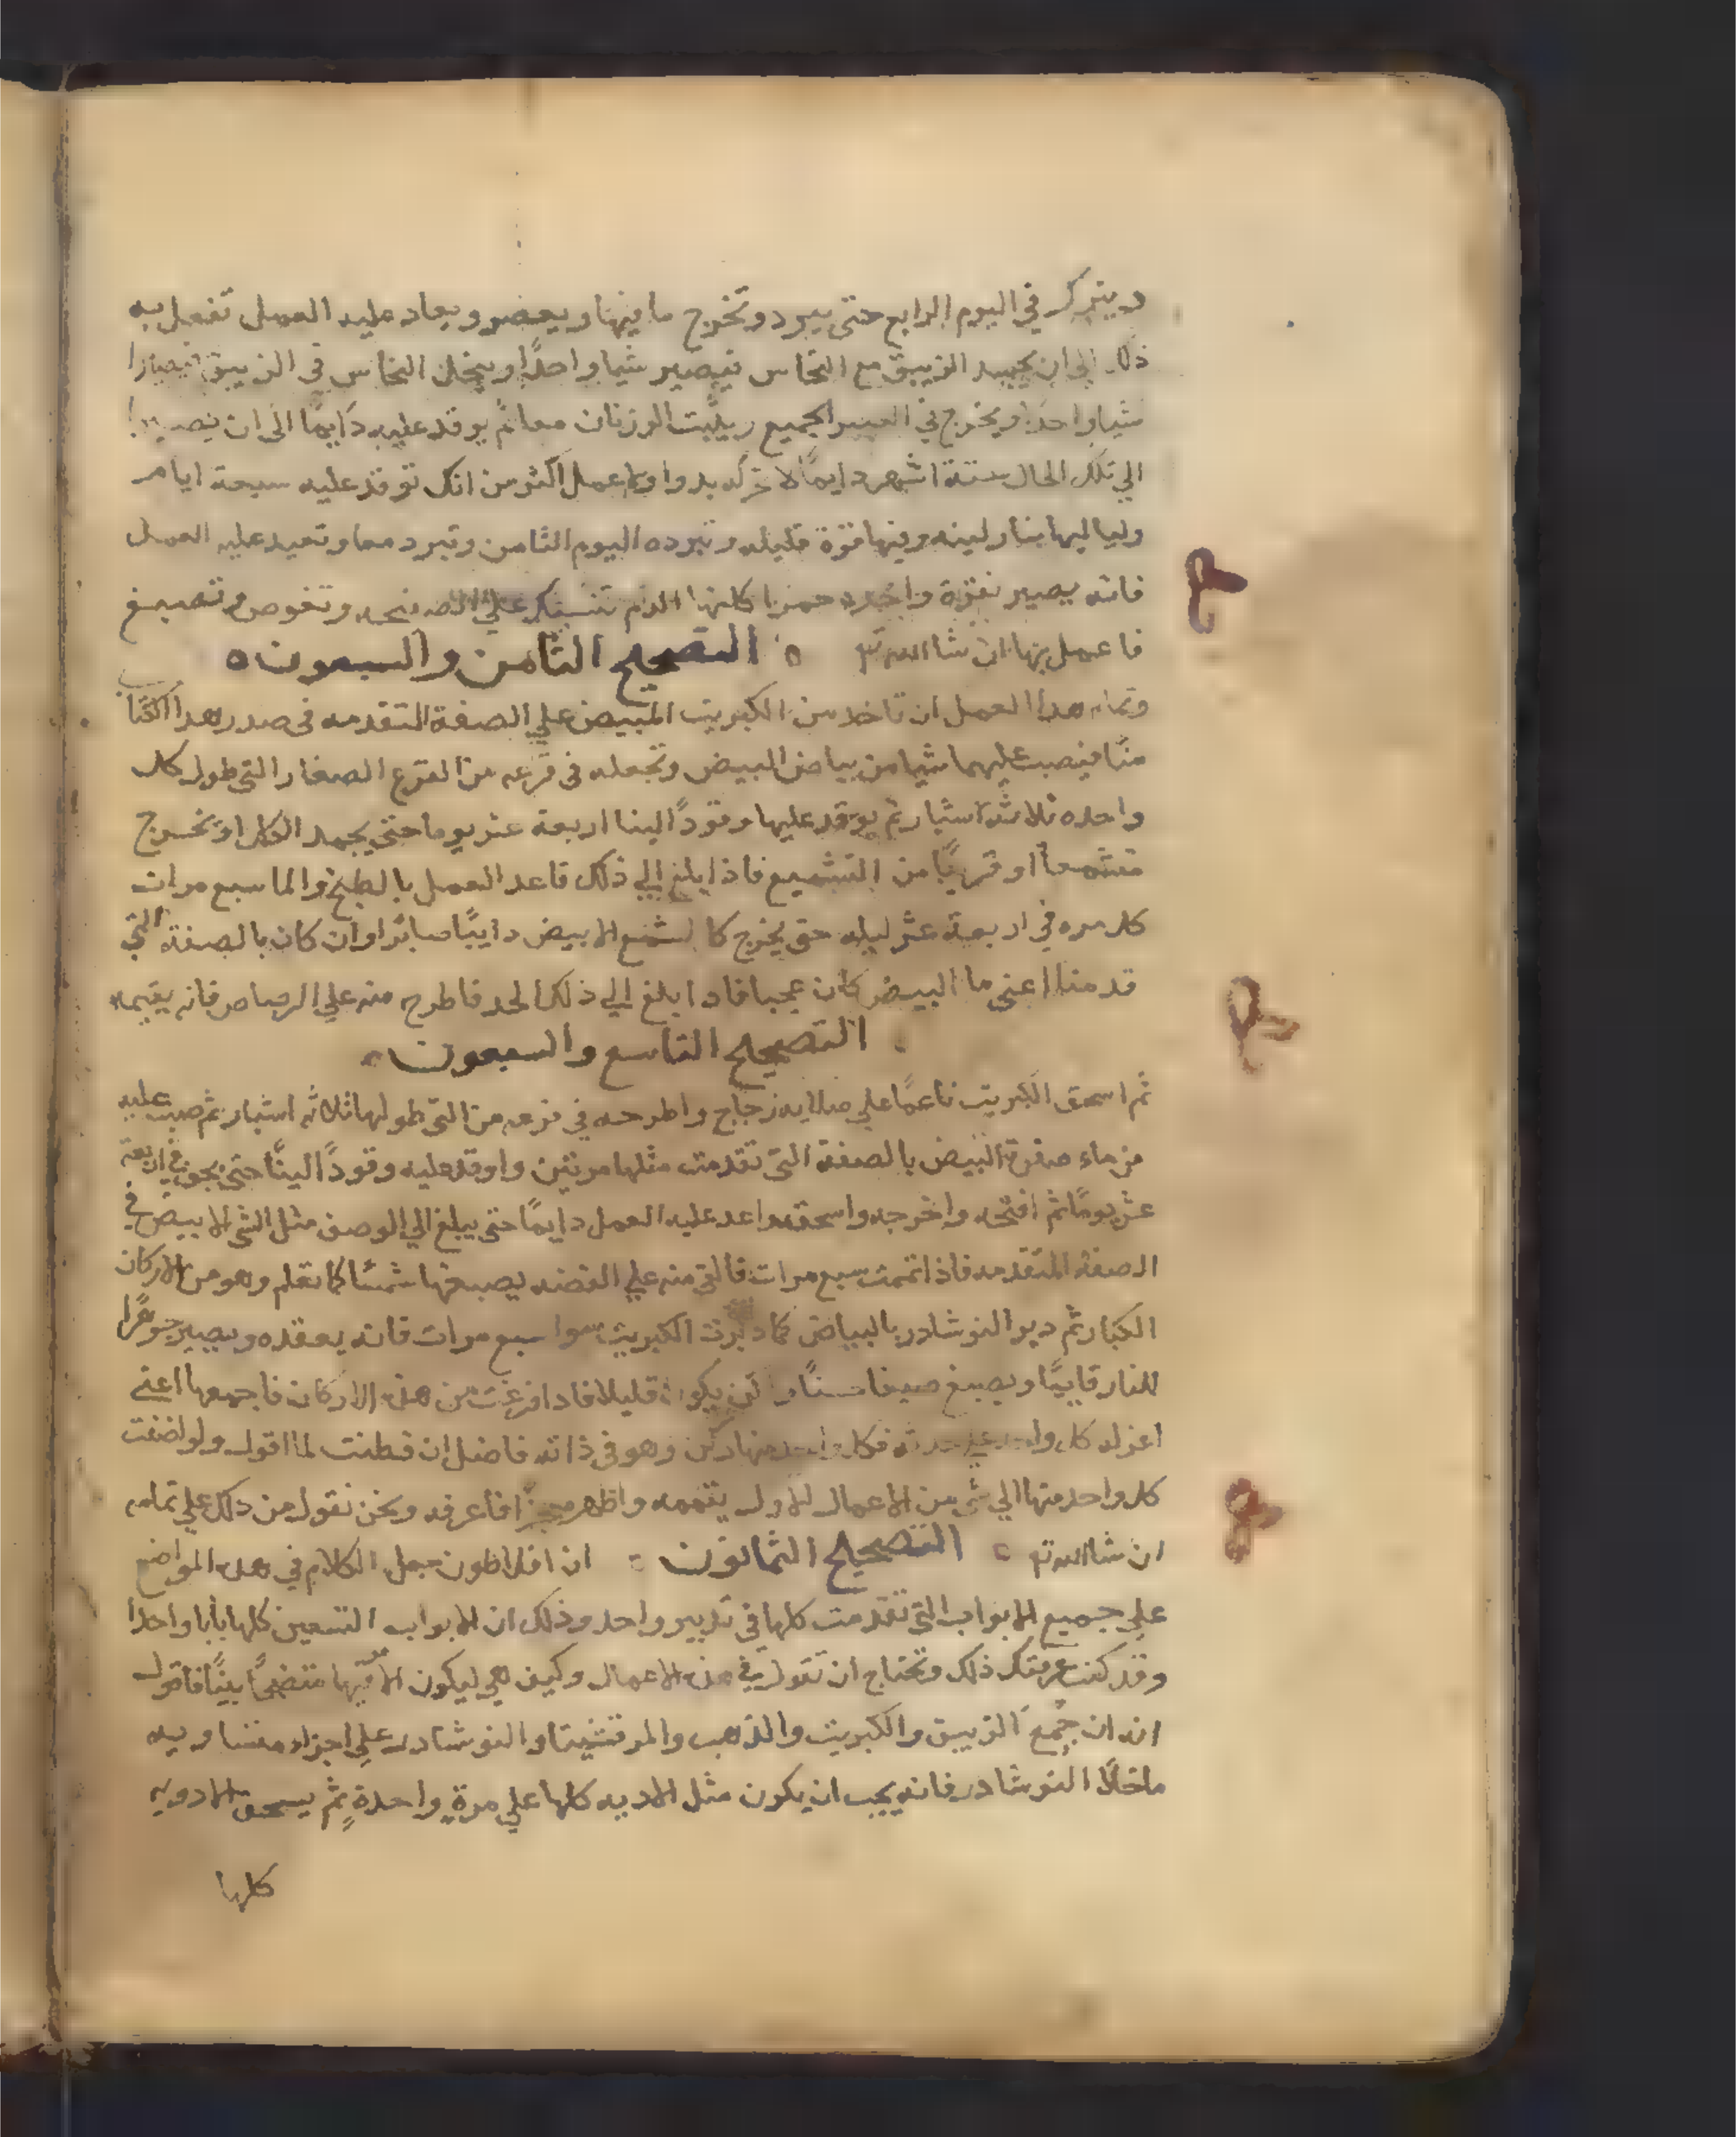 ويترك في اليوم الرابع حتى يبرد وتخرج ما فيها ويعصر ويعاد عليه العمل تفعل به
ذلك الى ان يجمد الزيبق مع النحاس فيصير شيا واحدًا وينحل النحاس في الزيبق
شيا واحدا ويخرج في الجميع ويثبت الوزنان معا ثم يوقد عليه دايمًا الى ان
الي تلك الحال ستة اشهر دايمًا لا عمل اكثر من انك توقد عليه سبعة ايام
ولياليها بنار لينه وفيها قوة قليله وتبرده اليوم الثامن وتبرد معا وتعيد عليه العمل
فانه يصير نقرة واحده حمرا كانها الدم تنسبك علي الصفيحه وتغوص وتصبغ
فاعمل بها ان شا الله تع ه التصحيح الثامن والسبعون ه
وتمام هدا العمل ان تاخد من الكبريت المبيض علي الصفة المتقدمه في صدر هدا الكتاب
منًا فيصب عليهما شيا من بياض البيض وتجعله في قرعه من القرع الصغار التي طول كل
واحده ثلاثة اشبار ثم يوقد عليها وقودًا لينا اربعة عشر يوما حتى يجمد الكل او تخرج
متشمعا او قريبًا من التشميع فاذا بلغ الي ذلك فاعد العمل بالطبخ والما سبع مرات
كل مره في اربعة عشر ليله حتى يخرج كالشمع الابيض دايبًا صابرًا وان كان بالصفة التي
قدمنا اعني ما البيض كان عجبا فادا بلغ الي ذلك الحد فاطرح منه علي الرصاص فانه يقيمه
التصحيح التاسع والسبعون
ثم اسحق الكبريت ناعمًا علي صلايه زجاج واطرحه في قرعه من التي طولها ثلاثه اشبار ثم صب عليه
من ماء صفرة البيض بالصفة التي تقدمت مثلها مرتين واوقد عليه وقودًا لينًا حتى يجف في اربعة
عشر يومًا ثم افتحه واخرجه واسحقه واعد عليه العمل دايمًا حتى يبلغ الي الوصف مثل الشي الابيض في
الصفة المتقدمه فاذا تممت سبع مرات فالق منه علي الفضه يصبغها شمسًا كما تعلم وهو من الاركان
الكبار ثم دبر النوشادر بالبياض كما دبرت الكبريت سوا سبع مرات فانه يعقده ويصير جوهرًا
للنار قايمًا ويصبغ صبغا حسنًا لكن يكون قليلا فادا فرغت من هذه الاركان فاجمعها اعني
اعزل كل واحد علي حدته فكل واحد منها ركن وهو في ذاته فاضل ان فطنت لما اقول ولو اضفت
كل واحد منها الي شي من الاعمال الاول يتممه واظهر معجزًا فاعرفه ونحن نقول من ذلك علي تمامه
ان شا الله تع ه التصحيح الثمانون ه ان افلاطون جعل الكلام في هده المواضع
علي جميع الابواب التي تقدمت كلها في تدبير واحد وذلك ان الابواب التسعين كلها بابا واحدا
وقد كنت عرفتك ذلك وتحتاج ان تقول في هذه الاعمال وكيف هي ليكون الامر فيها متضحًا بينًا فاقول
انه ان جُمع الزيبق والكبريت والذهب والمرقشيثا والنوشادر علي اجزاء متساويه
ما خلا النوشادر فانه يجب ان يكون مثل الادويه كلها علي مرةٍ واحدةٍ ثم يسحق الادويه
كلها